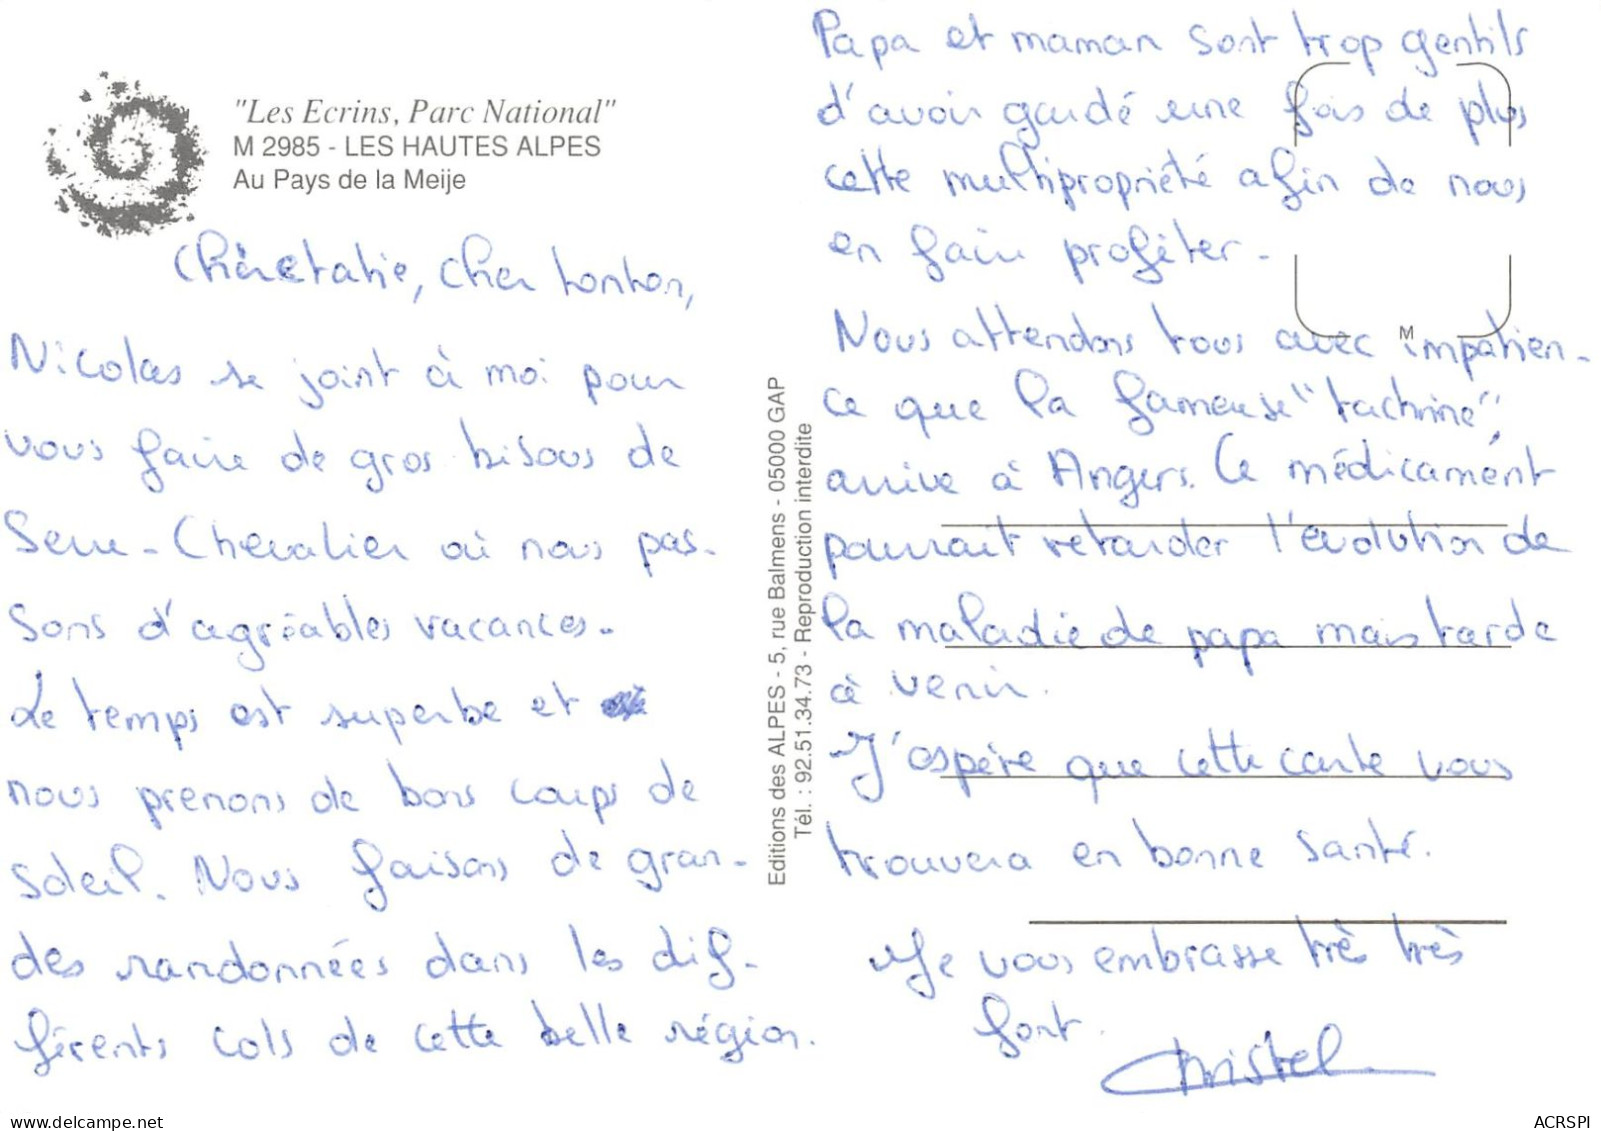 "Les Ecrins, Parc National"
M 2985 - LES HAUTES ALPES
Au Pays de la Meije
Chère tatie, cher tonton,
Nicolas se joint à moi pour
vous faire de gros bisous de
Serre-Chevalier où nous pas-
sons d'agréables vacances.
Le temps est superbe et
nous prenons de bons coups de
soleil. Nous faisons de gran-
des randonnées dans les dif-
férents cols de cette belle région.
Editions des ALPES - 5, rue Balmens - 05000 GAP
Tél. : 92.51.34.73 - Reproduction interdite
Papa et maman sont trop gentils
d'avoir gardé une fois de plus
cette multipropriété afin de nous
en faire profiter.
Nous attendons tous avec impatien-
ce que la fameuse "tachrine",
arrive à Angers. Ce médicament
pourrait retarder l'évolution de
la maladie de papa mais tarde
à venir.
J'espère que cette carte vous
trouvera en bonne santé.
Je vous embrasse très très
fort.
Christel
M
ACRSPI